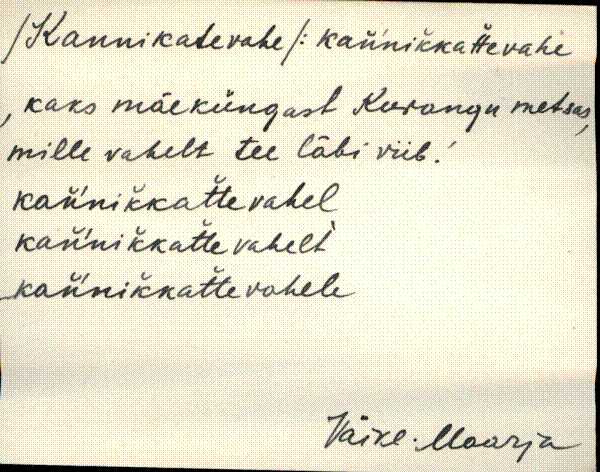 /Kannikatevahe/: kan̆'nik̆kat̆tevahe
, kaks mäeküngast Kurangu metsas,
mille vahelt tee läbi viib.'
kan̆'nik̆kat̆tevahel
kan̆'nik̆kat̆tevahelt̀
kan̆'nik̆kat̆tevahele
Väike-Maarja